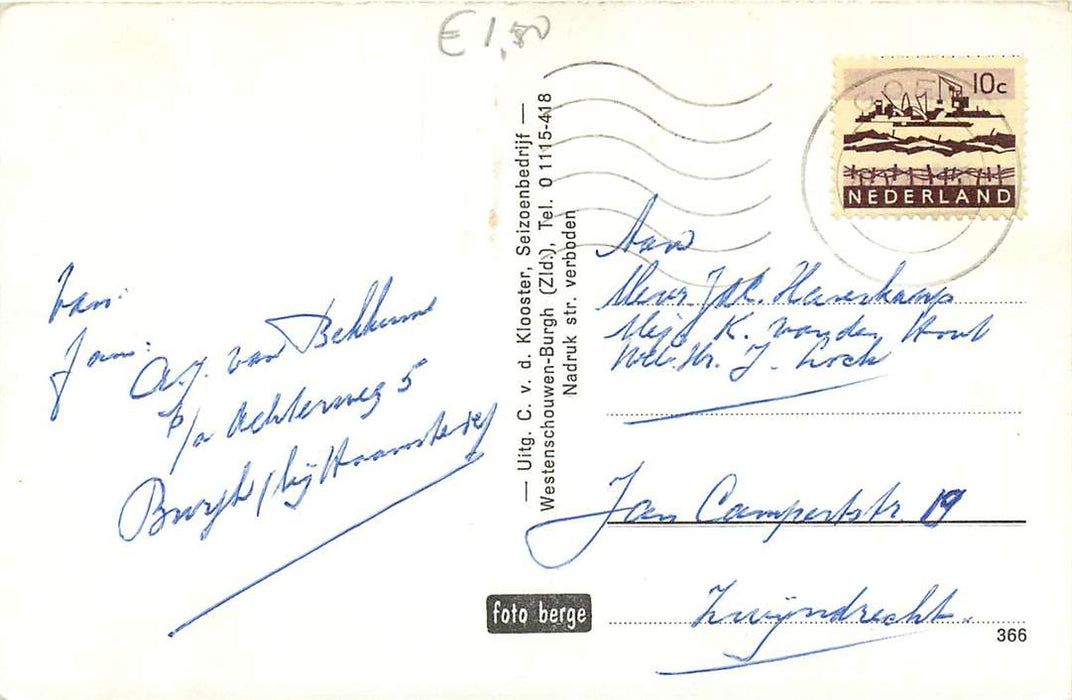 € 1,50
10c
NEDERLAND
GOE
Van:
fam:
A.J. van Bekkum
p/a Achterweg 5
Burgh / bij Haamstede
— Uitg. C. v. d. Klooster, Seizoenbedrijf —
Westenschouwen-Burgh (Zld.), Tel. 0 1115-418
Nadruk str. verboden
Aan
K. van den Hout
J.
Jan Campertstr. 19
Zwijndrecht.
foto berge
366